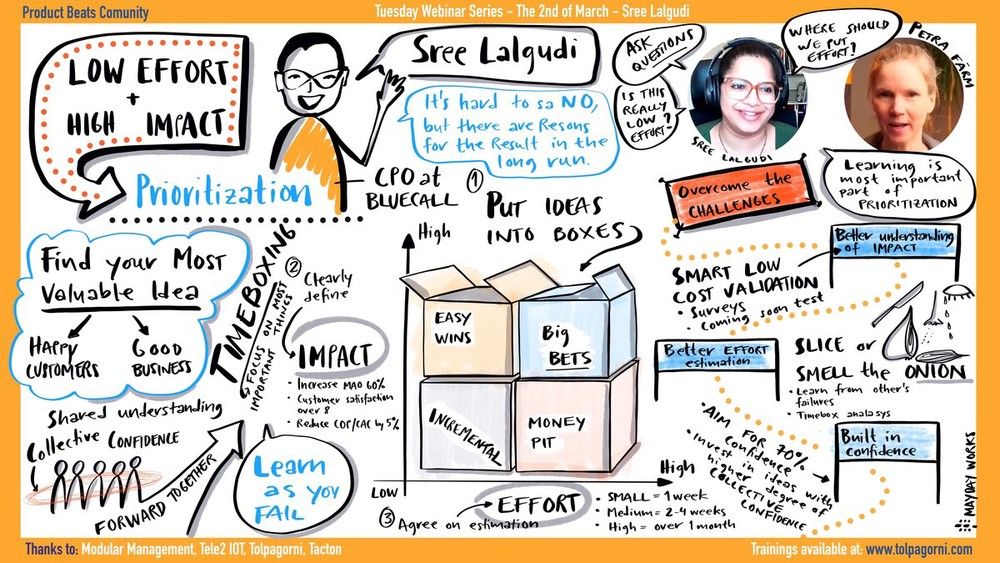 Product Beats Comunity
Tuesday Webinar Series - The 2nd of March - Sree Lalgudi
LOW EFFORT
+
HIGH IMPACT
Prioritization
Sree Lalgudi
It's hard to sa NO,
but there are Resons
for the Result in the
long run.
CPO at
BLUECALL
ASK
QUESTIONS
IS THIS
REALLY
LOW?
EFFORT-
SREE LALGUDI
WHERE SHOULD
WE PUT
EFFORT?
PETRA FÄRM
Learning is
most important
part of
PRIORITIZATION
Find your Most
Valuable Idea
HAPPY
CUSTOMERS
GOOD
BUSINESS
Shared understanding
Collective CONFIDENCE
FORWARD TOGETHER
TIMEBOXING
FOCUS ON MOST
IMPORTANT THINGS
②
Clearly
define
IMPACT
• Increase MAO 60%
• Customer satisfaction
over 8
• Reduce COP/CAC by 5%
Learn
as you
FAIL
①
PUT IDEAS
INTO BOXES
High
EASY
WINS
Big
BETS
INCREMENTAL
MONEY
PIT
LOW
High
③
Agree on estimation
EFFORT
• SMALL = 1 week
• Medium = 2-4 weeks
• High = over 1 month
Overcome the
CHALLENGES
Better understanding
of IMPACT
SMART LOW
COST VALIDATION
• Surveys
• Coming soon test
Better EFFORT
estimation
SLICE or
SMELL the ONION
• Learn from other's
failures
• Timebox analasys
Built in
confidence
• AIM FOR 70%
confidence
• Invest in ideas with
higher degree of
COLLECTIVE
CONFIDENCE
MAYDAY WORKS
Thanks to: Modular Management, Tele2 IOT, Tolpagorni, Tacton
Trainings available at: www.tolpagorni.com